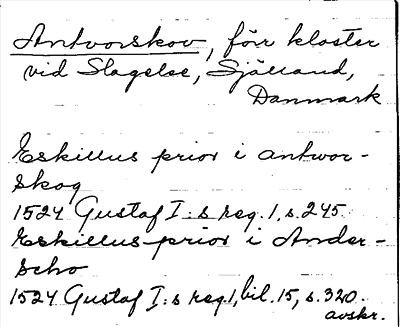 Antvorskov, förr kloster
vid Slagelse, Själland,
Danmark
Eskillus prior i antwor-
skog
1524 Gustaf I:s reg. 1, s. 245.
Eskillus prior i Ander-
scho
1524 Gustaf I:s reg 1, bil. 15, s. 320
avskr.